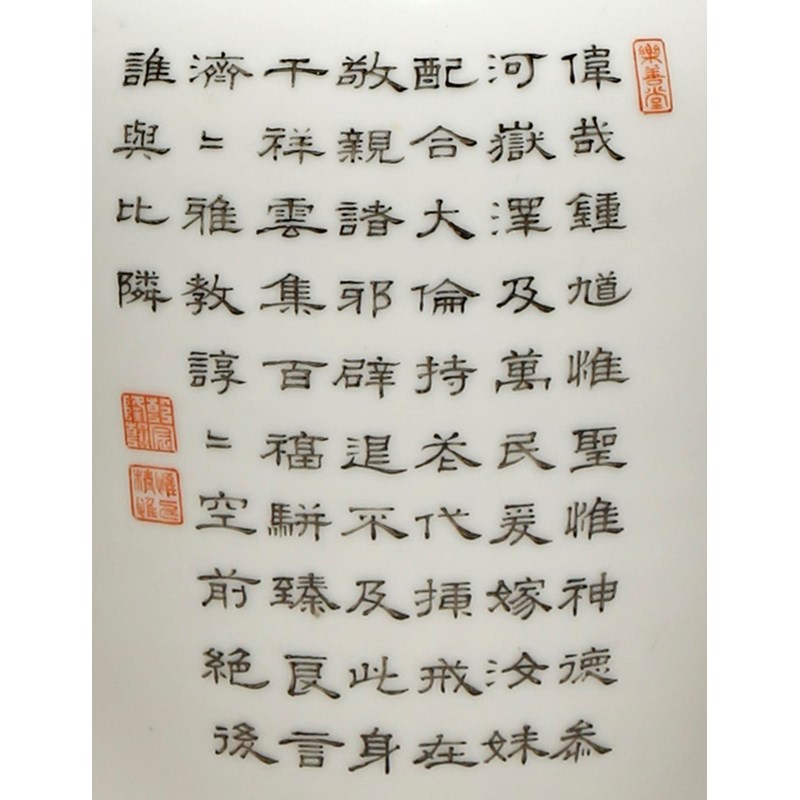 樂善堂
偉哉鍾馗惟聖惟神德叅
河嶽澤及萬民爰嫁汝妹
配合大倫持代戒在
敬親諸邪辟退不及此身
千祥雲集百福駢臻良言
濟〻雅教諄〻空前絕後
誰與比隣